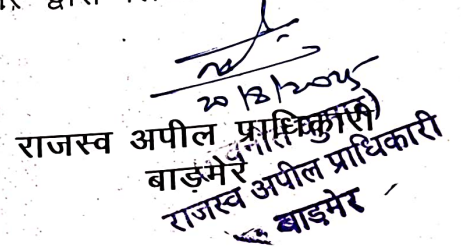 द्वारा
20/8/2025
राजस्व अपील प्राधिकारी
बाड़मेर
राजस्व अपील प्राधिकारी
बाड़मेर